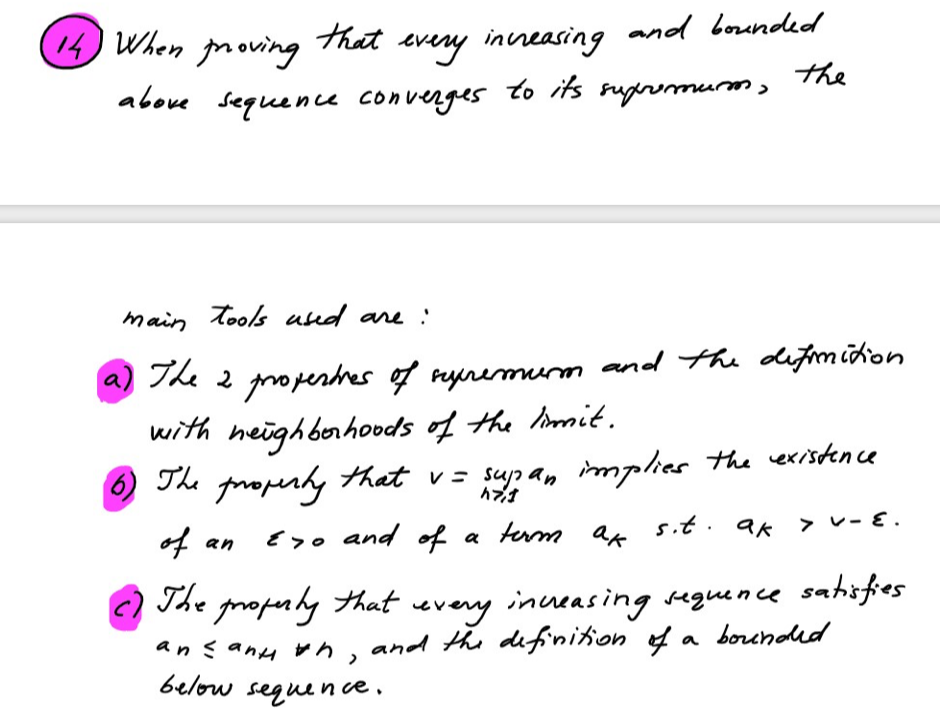 14 When proving that every increasing and bounded
above sequence converges to its supremum, the
main tools used are :
a) The 2 properties of supremum and the definition
with neighborhoods of the limit.
b) The property that v = sup an implies the existence
n≥1
of an ε>0 and of a term aK s.t. aK > v-ε.
c) The property that every increasing sequence satisfies
an ≤ an+1 ∀n, and the definition of a bounded
below sequence.